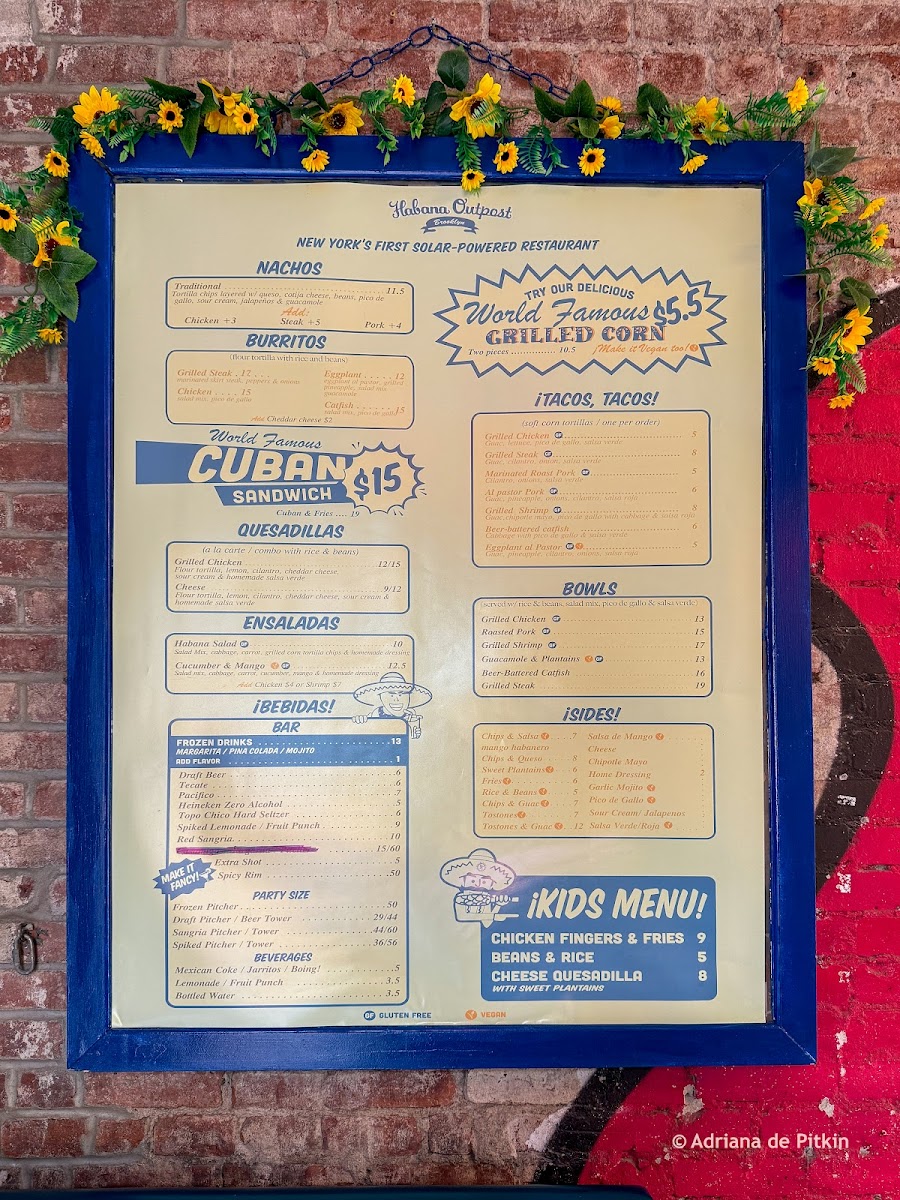 Habana Outpost
Brooklyn
NEW YORK'S FIRST SOLAR-POWERED RESTAURANT
NACHOS
Traditional 11.5
Tortilla chips layered w/ queso, cotija cheese, beans, pico de
gallo, sour cream, jalapeños & guacamole
Add:
Chicken +3 Steak +5 Pork +4
BURRITOS
(flour tortilla with rice and beans)
Grilled Steak . 17 . . .
marinated skirt steak, peppers & onions
Chicken . . . . 15
salad mix, pico de gallo
Eggplant . . . . . 12
eggplant al pastor, grilled
pineapple, salad mix
guacamole
Catfish . . . . . . 15
salad mix, pico de gallo
Add Cheddar cheese $2
World Famous
CUBAN
SANDWICH
$15
Cuban & Fries .... 19
QUESADILLAS
(a la carte / combo with rice & beans)
Grilled Chicken 12/15
Flour tortilla, lemon, cilantro, cheddar cheese,
sour cream & homemade salsa verde
Cheese 9/12
Flour tortilla, lemon, cilantro, cheddar cheese, sour cream &
homemade salsa verde
ENSALADAS
Habana Salad GF 10
Salad Mix, cabbage, carrot, grilled corn tortilla chips & homemade dressing
Cucumber & Mango GF 12.5
Salad mix, cabbage, carrot, cucumber, mango & homemade dressing
Add Chicken $4 or Shrimp $7
¡BEBIDAS!
BAR
FROZEN DRINKS 13
MARGARITA / PINA COLADA / MOJITO
ADD FLAVOR 1
Draft Beer .6
Tecate .6
Pacifico .7
Heineken Zero Alcohol .5
Topo Chico Hard Seltzer 6
Spiked Lemonade / Fruit Punch 9
Red Sangria 10
15/60
MAKE IT
FANCY!
Extra Shot 5
Spicy Rim .50
PARTY SIZE
Frozen Pitcher 50
Draft Pitcher / Beer Tower 29/44
Sangria Pitcher / Tower .44/60
Spiked Pitcher / Tower 36/56
BEVERAGES
Mexican Coke / Jarritos / Boing! .5
Lemonade / Fruit Punch 3.5
Bottled Water 3.5
TRY OUR DELICIOUS
World Famous $5.5
GRILLED CORN
Two pieces ............... 10.5 ¡Make it Vegan too! V
¡TACOS, TACOS!
(soft corn tortillas / one per order)
Grilled Chicken GF 5
Guac, lettuce, pico de gallo, salsa verde
Grilled Steak GF 8
Guac, cilantro, onion, salsa verde
Marinated Roast Pork GF 5
Cilantro, onions, salsa verde
Al pastor Pork GF 6
Guac, pineapple, onions, cilantro, salsa roja
Grilled Shrimp GF 8
Guac, chipotle mayo, pico de gallo with cabbage & salsa roja
Beer-battered catfish 6
Cabbage with pico de gallo & salsa verde
Eggplant al Pastor GF V 5
Guac, pineapple, cilantro, onions, salsa roja
BOWLS
(served w/ rice & beans, salad mix, pico de gallo & salsa verde)
Grilled Chicken GF 13
Roasted Pork GF 15
Grilled Shrimp GF 17
Guacamole & Plantains V GF 13
Beer-Battered Catfish 16
Grilled Steak 19
¡SIDES!
Chips & Salsa V . 7
mango habanero
Chips & Queso 8
Sweet Plantains V 6
Fries V 6
Rice & Beans V 5
Chips & Guac V 7
Tostones V 7
Tostones & Guac V . 12
Salsa de Mango V
Cheese
Chipotle Mayo
Home Dressing 2
Garlic Mojito V
Pico de Gallo V
Sour Cream/ Jalapenos
Salsa Verde/Roja V
¡KIDS MENU!
CHICKEN FINGERS & FRIES 9
BEANS & RICE 5
CHEESE QUESADILLA 8
WITH SWEET PLANTAINS
GF GLUTEN FREE V VEGAN
© Adriana de Pitkin